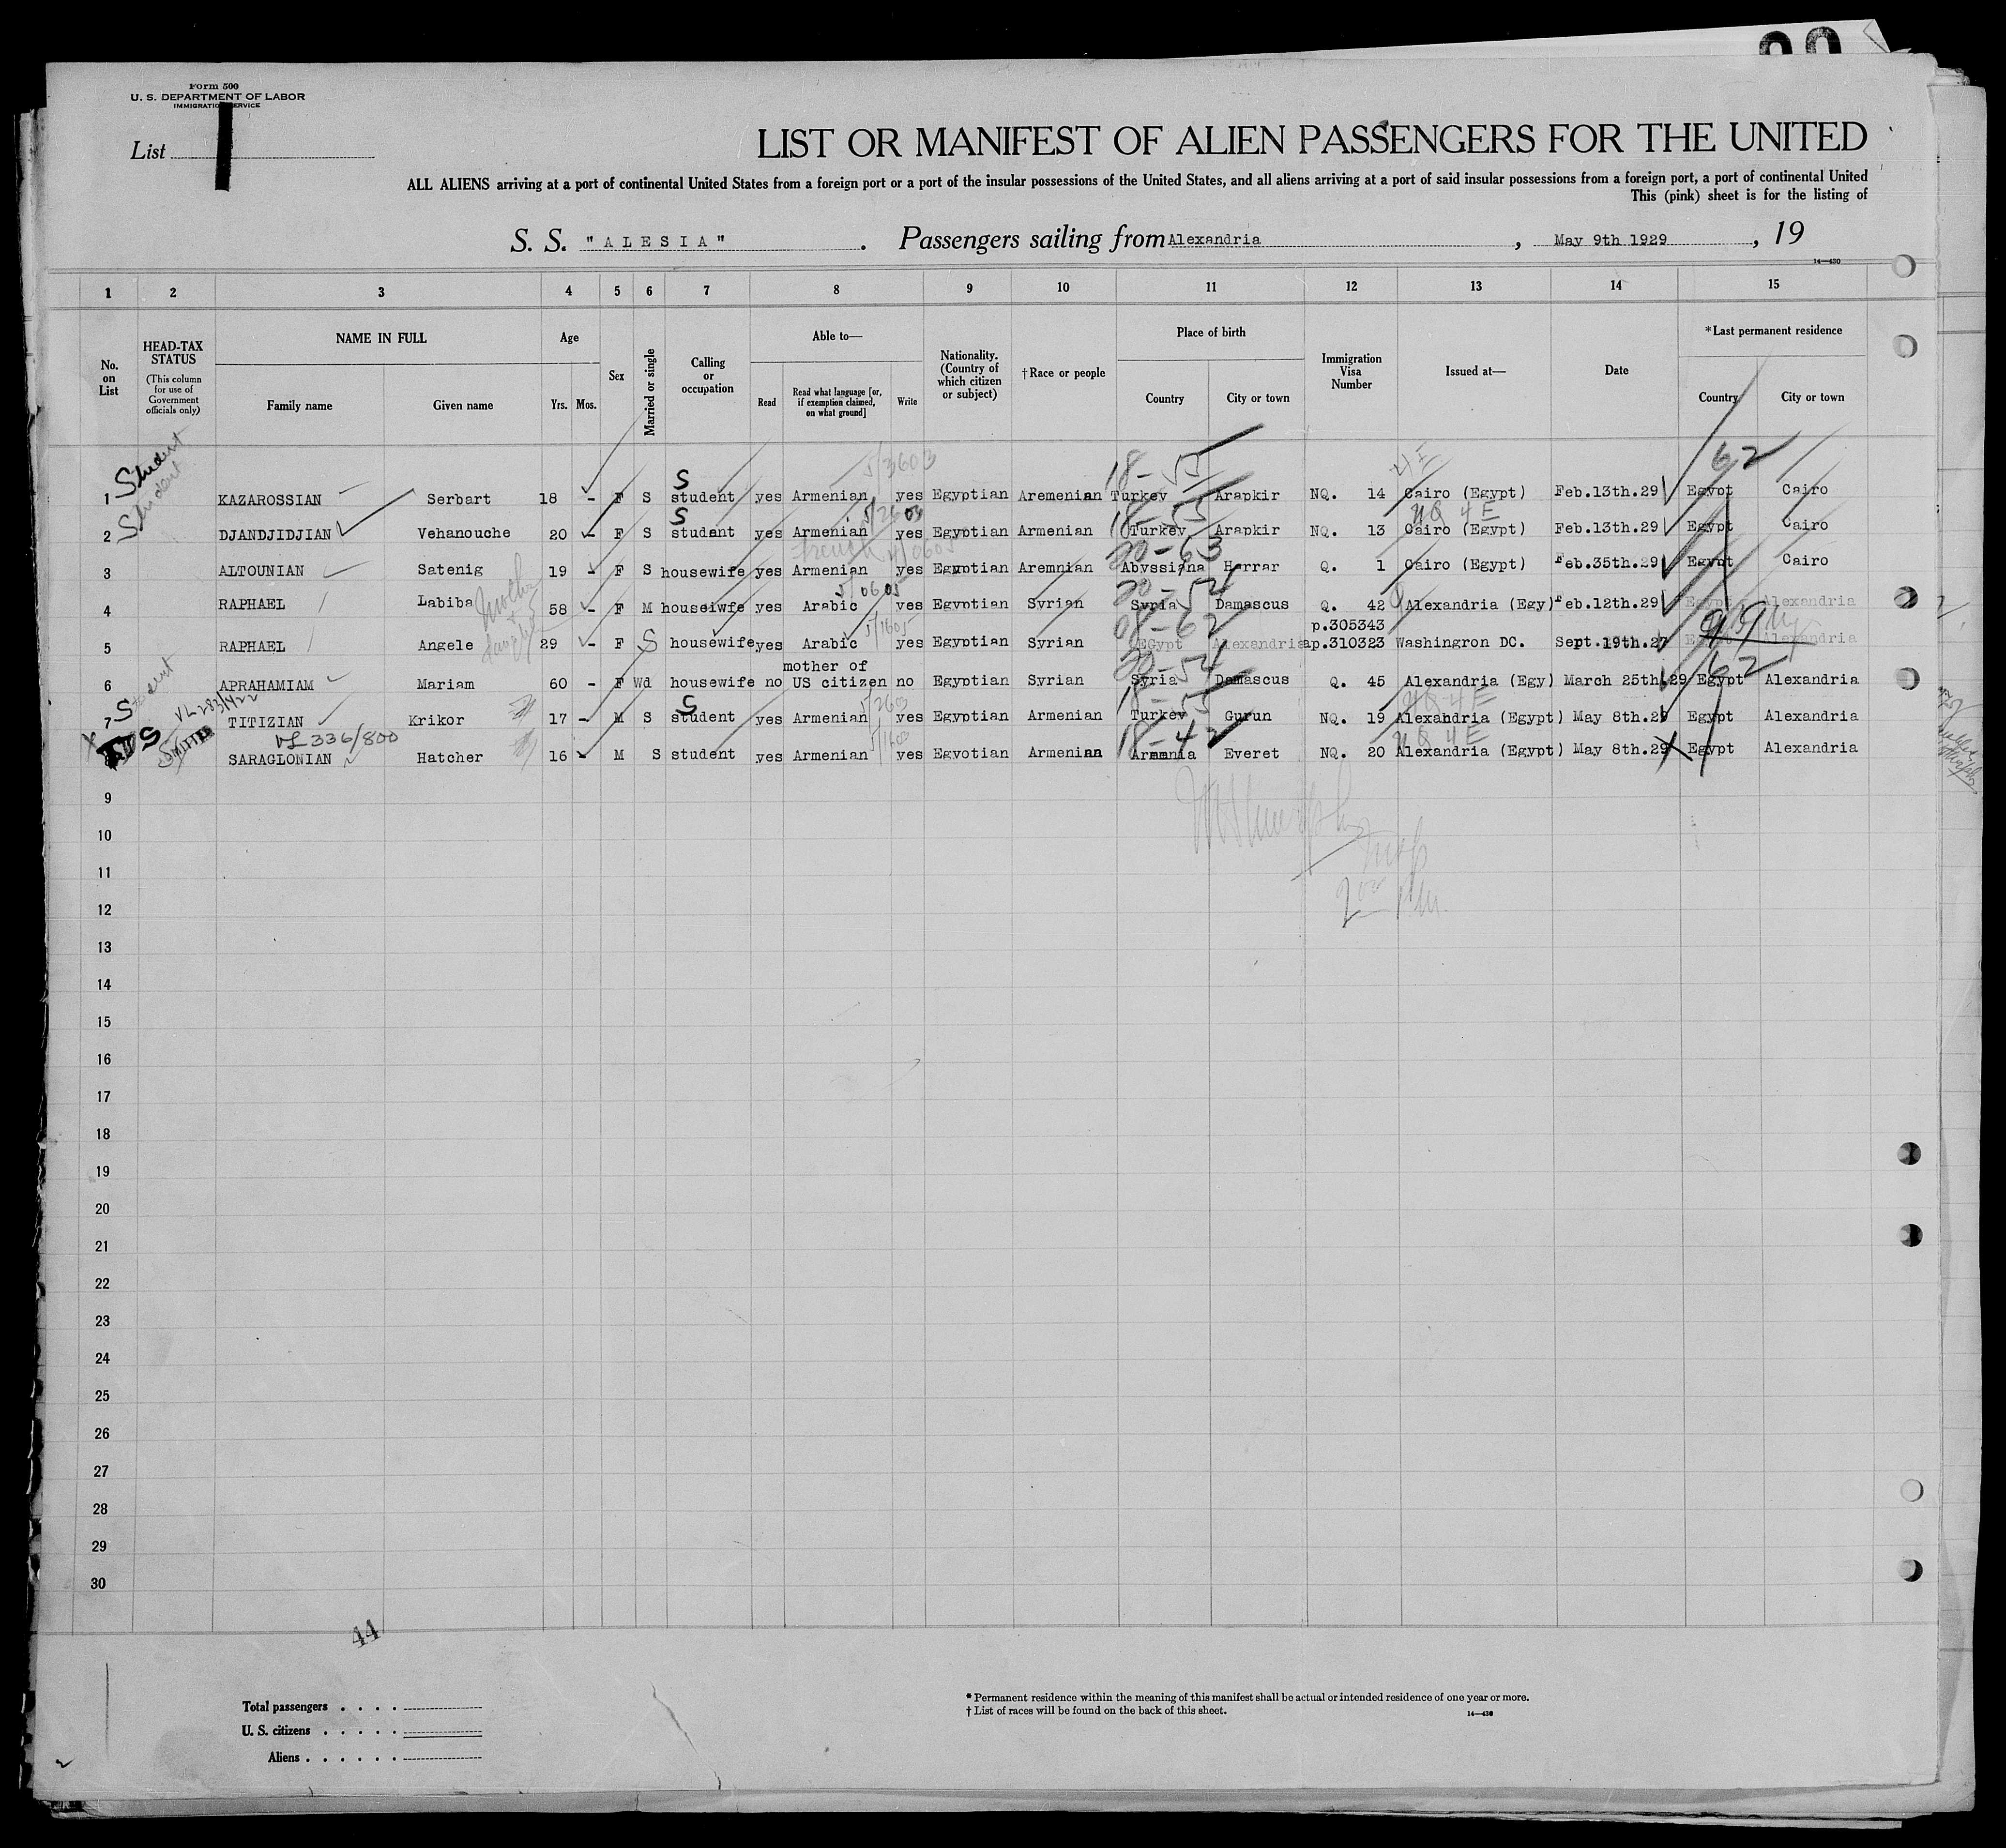 Form 500
U. S. DEPARTMENT OF LABOR
IMMIGRATION SERVICE
List
LIST OR MANIFEST OF ALIEN PASSENGERS FOR THE UNITED
ALL ALIENS arriving at a port of continental United States from a foreign port or a port of the insular possessions of the United States, and all aliens arriving at a port of said insular possessions from a foreign port, a port of continental United
This (pink) sheet is for the listing of
S. S. "ALESIA" . Passengers sailing from Alexandria , May 9th 1929 , 19
14—430
1 2 3 4 5 6 7 8 9 10 11 12 13 14 15
No. on List
HEAD-TAX STATUS (This column for use of Government officials only)
NAME IN FULL
Family name Given name
Age
Yrs. Mos.
Sex
Married or single
Calling or occupation
Able to—
Read Read what language [or, if exemption claimed, on what ground] Write
Nationality. (Country of which citizen or subject)
†Race or people
Place of birth
Country City or town
Immigration Visa Number
Issued at—
Date
*Last permanent residence
Country City or town
Student
Student
18-55 62
S
1 KAZAROSSIAN Serbart 18 - F S student yes Armenian yes Egyptian Aremenian Turkey Arapkir NQ. 14 Cairo (Egypt) Feb.13th.29 Egypt Cairo
S 18-55 NQ 4E
2 DJANDJIDJIAN Vehanouche 20 - F S student yes Armenian yes Egyptian Armenian Turkey Arapkir NQ. 13 Cairo (Egypt) Feb.13th.29 Egypt Cairo
french 20-63
3 ALTOUNIAN Satenig 19 - F S housewife yes Armenian yes Egyptian Aremnian Abyssiana Harrar Q. 1 Cairo (Egypt) Feb.35th.29 Egypt Cairo
Mother 20-54
4 RAPHAEL Labiba 58 - F M houseiwfe yes Arabic yes Egyptian Syrian Syria Damascus Q. 42 Alexandria (Egy) Feb.12th.29 Egypt Alexandria
p.305343
08-62 99
5 RAPHAEL Angele 29 - F S housewife yes Arabic yes Egyptian Syrian EGypt Alexandria p.310323 Washingron DC. Sept.19th.27 Egypt Alexandria
mother of 20-54 62
6 APRAHAMIAM Mariam 60 - F Wd housewife no US citizen no Egyptian Syrian Syria Damascus Q. 45 Alexandria (Egy) March 25th.29 Egypt Alexandria
Student VL 283/422
S 18-55 NQ-4E
7 TITIZIAN Krikor 17 - M S student yes Armenian yes Egyptian Armenian Turkey Gurun NQ. 19 Alexandria (Egypt) May 8th.29 Egypt Alexandria
VL 336/800 18-42 NQ 4E
SARAGLONIAN Hatcher 16 - M S student yes Armenian yes Egyptian Armenian Armania Everet NQ. 20 Alexandria (Egypt) May 8th.29 Egypt Alexandria
9
10
11
12
13
14
15
16
17
18
19
20
21
22
23
24
25
26
27
28
29
30
44
Total passengers . . . .
U. S. citizens . . . . .
Aliens . . . . . .
* Permanent residence within the meaning of this manifest shall be actual or intended residence of one year or more.
† List of races will be found on the back of this sheet.
14—430